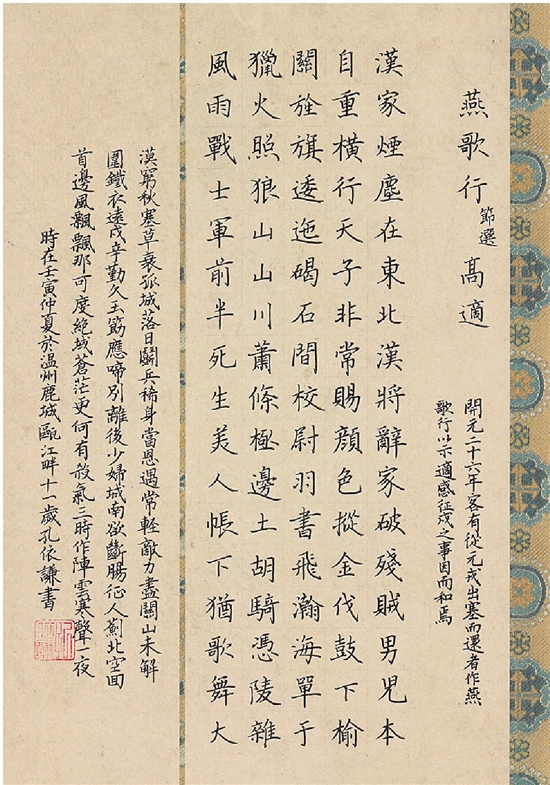 燕歌行 節選 高適
開元二十六年客有從元戎出塞而還者作燕
歌行以示適感征戍之事因而和焉
漢家煙塵在東北漢將辭家破殘賊男兒本
自重橫行天子非常賜顏色摐金伐鼓下榆
關旌旗逶迤碣石間校尉羽書飛瀚海單于
獵火照狼山山川蕭條極邊土胡騎憑陵雜
風雨戰士軍前半死生美人帳下猶歌舞大
漠窮秋塞草衰孤城落日鬬兵稀身當恩遇常輕敵力盡關山未解
圍鐵衣遠戍辛勤久玉筯應啼別離後少婦城南欲斷腸征人薊北空回
首邊風飄飄那可度絕域蒼茫更何有殺氣三時作陣雲寒聲一夜
時在壬寅仲夏於溫州鹿城甌江畔十一歲孔依謙書